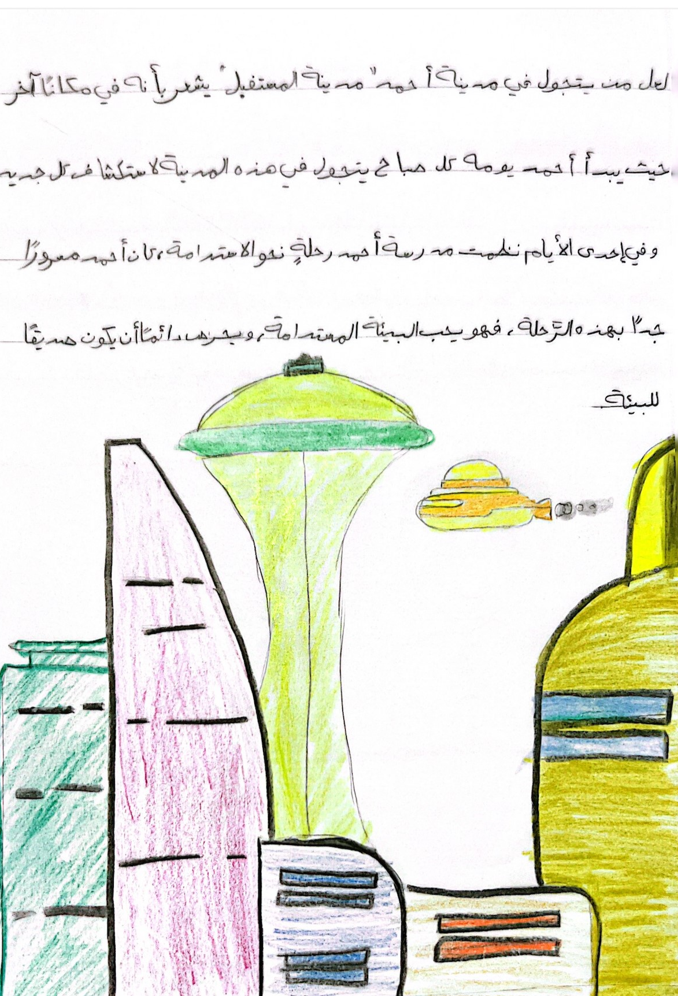 لعل من يتجول في مدينة أحمد "مدينة المستقبل" يشعر بأنه في مكانًا آخر
حيث يبدأ أحمد يومه كل صباح يتجول في هذه المدينة لاستكشاف كل جديد
وفي إحدى الأيام نظمت مدرسة أحمد رحلةٍ نحو الاستدامة، كان أحمد مسرورًا
جدًا بهذه الرَّحلة، فهو يحب البيئة المستدامة، ويحرص دائمًا أن يكون صديقًا
للبيئة.